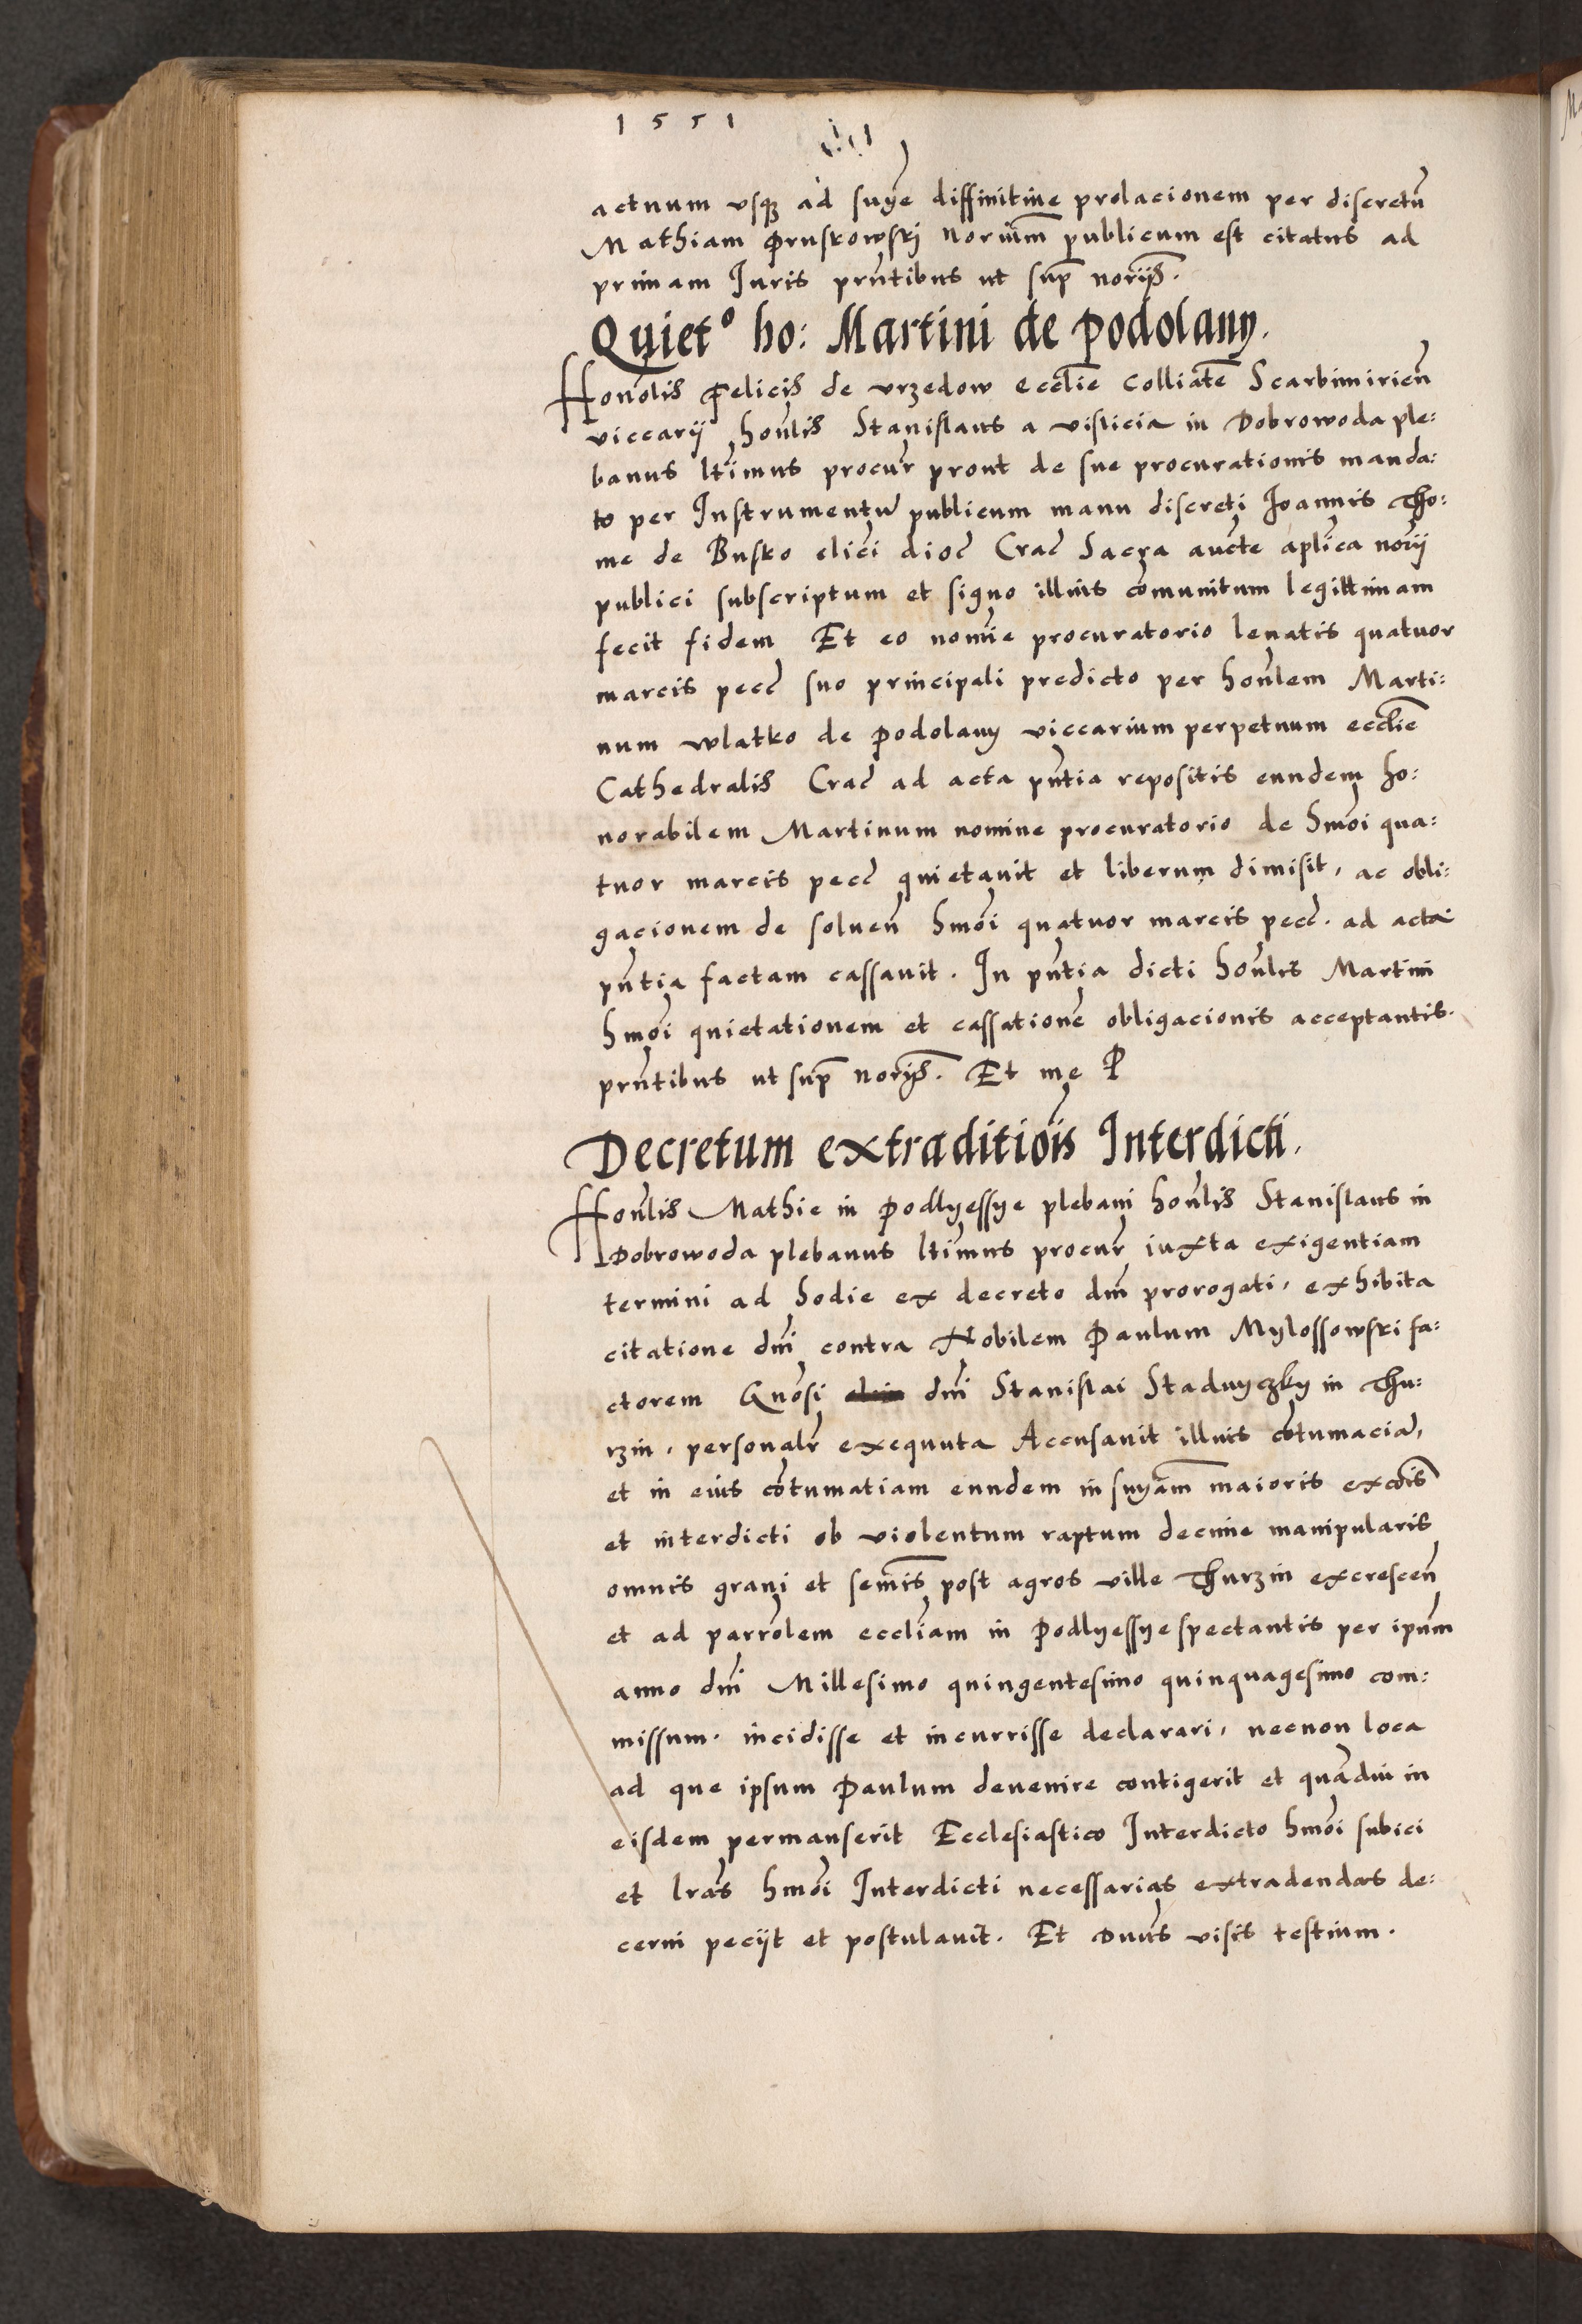 1551
actuum usqȝ ad suīye diffinitiue prolacionem per discretū
Mathiam Pruskowskj noriūm publicum est citatus ad
primam Juris prn̄tibus ut sup̄ norijs̄.
Quiet° ho: Martini de Podolany.
Honōlis Felicis de vrzedow ecclīe colliatē Scarbimirien̄
viccarij hon̄lis Stanislaus a vislicia in Dobrowoda ple:
banus ltīmus procur̄ prout de sue procurationis manda:
to per Instrumentū publicum manu discreti Joannis Tho:
me de Busko clīci dioc̄ Crac̄ Sacra auct̄e aplīca norīj
publici subscriptum et signo illius cōmunitum legittimam
fecit fidem Et eo nomīe procuratorio leuatis quatuor
marcis pecc̄ suo principali predicto per hon̄lem Marti:
num wlatko de Podolany viccarium perpetuum ecclīe
Cathedralis Crac̄ ad acta pn̄tia repositis eundem ho:
norabilem Martinum nomine procuratorio de hmōi qua:
tuor marcis pecc̄ quietauit et liberum dimisit, ac obli:
gacionem de soluen̄ hmōi quatuor marcis pecc̄. ad acta
pn̄tia factam cassauit. In pn̄tia dicti hon̄lis Martini
hmōi quietationem et cassationē obligacionis acceptantis.
prn̄tibus ut sup̄ norijs̄. Et me P
Decretum extraditiōis Interdicti.
Hon̄lis Mathie in Podlyessye plebani hon̄lis Stanislaus in
Dobrowoda plebanus ltīmus procur̄ iuxta exigentiam
termini ad hodie ex decreto dnī prorogati, exhibita
citatione dnī contra Nobilem Paulum Mylossowski fa:
ctorem Gnōsi dnī Stanislai Stadnyczky in Thu:
rzin, personalr̄ exequuta Accusauit illius cōtumaciā,
et in eius cōtumatiam eundem in suīyam maioris excōis
et interdicti ob violentum raptum decime manipularis
omnis grani et semīs post agros ville Thurzin excrescen̄
et ad parrōlem eccliām in Podlyessye spectantis per ipūm
anno dnī Millesimo quingentesimo quinquagesimo com:
missum. incidisse et incurrisse declarari, necnon loca
ad que ipsum Paulum deuenire contigerit et quādiu in
eisdem permanserit Ecclesiastico Interdicto hmōi subici
et lrās hmōi Interdicti necessarias extradendas de:
cerni pecijt et postulauit. Et Dnūs visis testium.